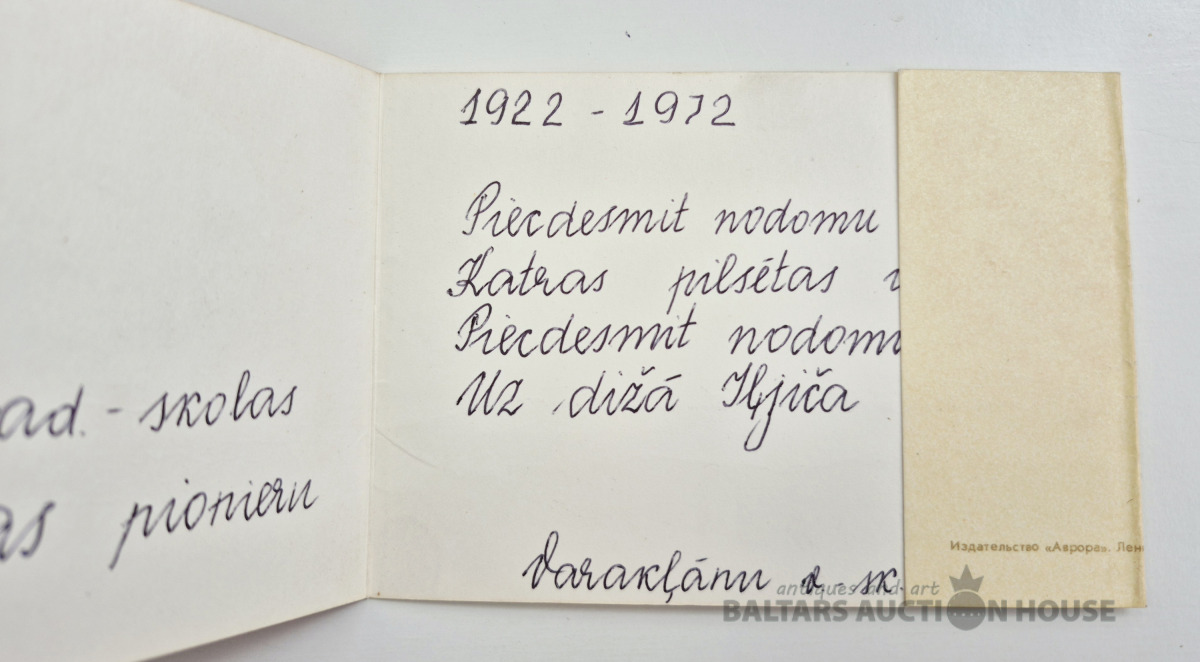 ad. - skolas
as pionieru
1922 - 1972
Piecdesmit nodomu
Katras pilsētas
Piecdesmit nodomu
Uz dižā Iļjiča
Varakļānu v - sk
Издательство «Аврора». Лен
antiques and art
BALTARS AUCTION HOUSE